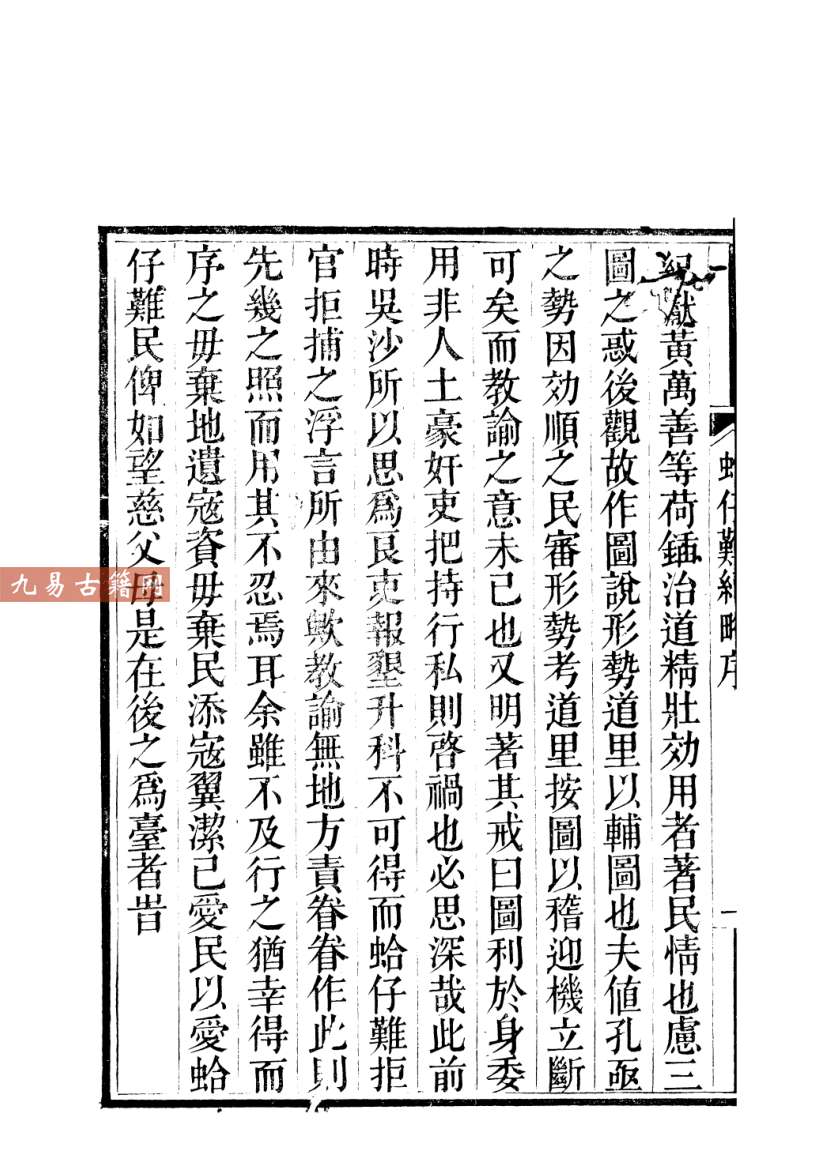 蛤仔難紀略序
一
紀獻黃萬善等荷鍤治道精壯効用者著民情也慮三
圖之惑後觀故作圖說形勢道里以輔圖也夫值孔亟
之勢因効順之民審形勢考道里按圖以稽迎機立斷
可矣而教諭之意未已也又明著其戒曰圖利於身委
用非人土豪奸吏把持行私則啓禍也必思深哉此前
時吳沙所以思爲良吏報墾升科不可得而蛤仔難拒
官拒捕之浮言所由來歟教諭無地方責眷眷作此則
先幾之照而用其不忍焉耳余雖不及行之猶幸得而
序之毋棄地遺寇資毋棄民添寇翼潔己愛民以愛蛤
仔難民俾如望慈父母是在後之爲臺者旹
九易古籍网